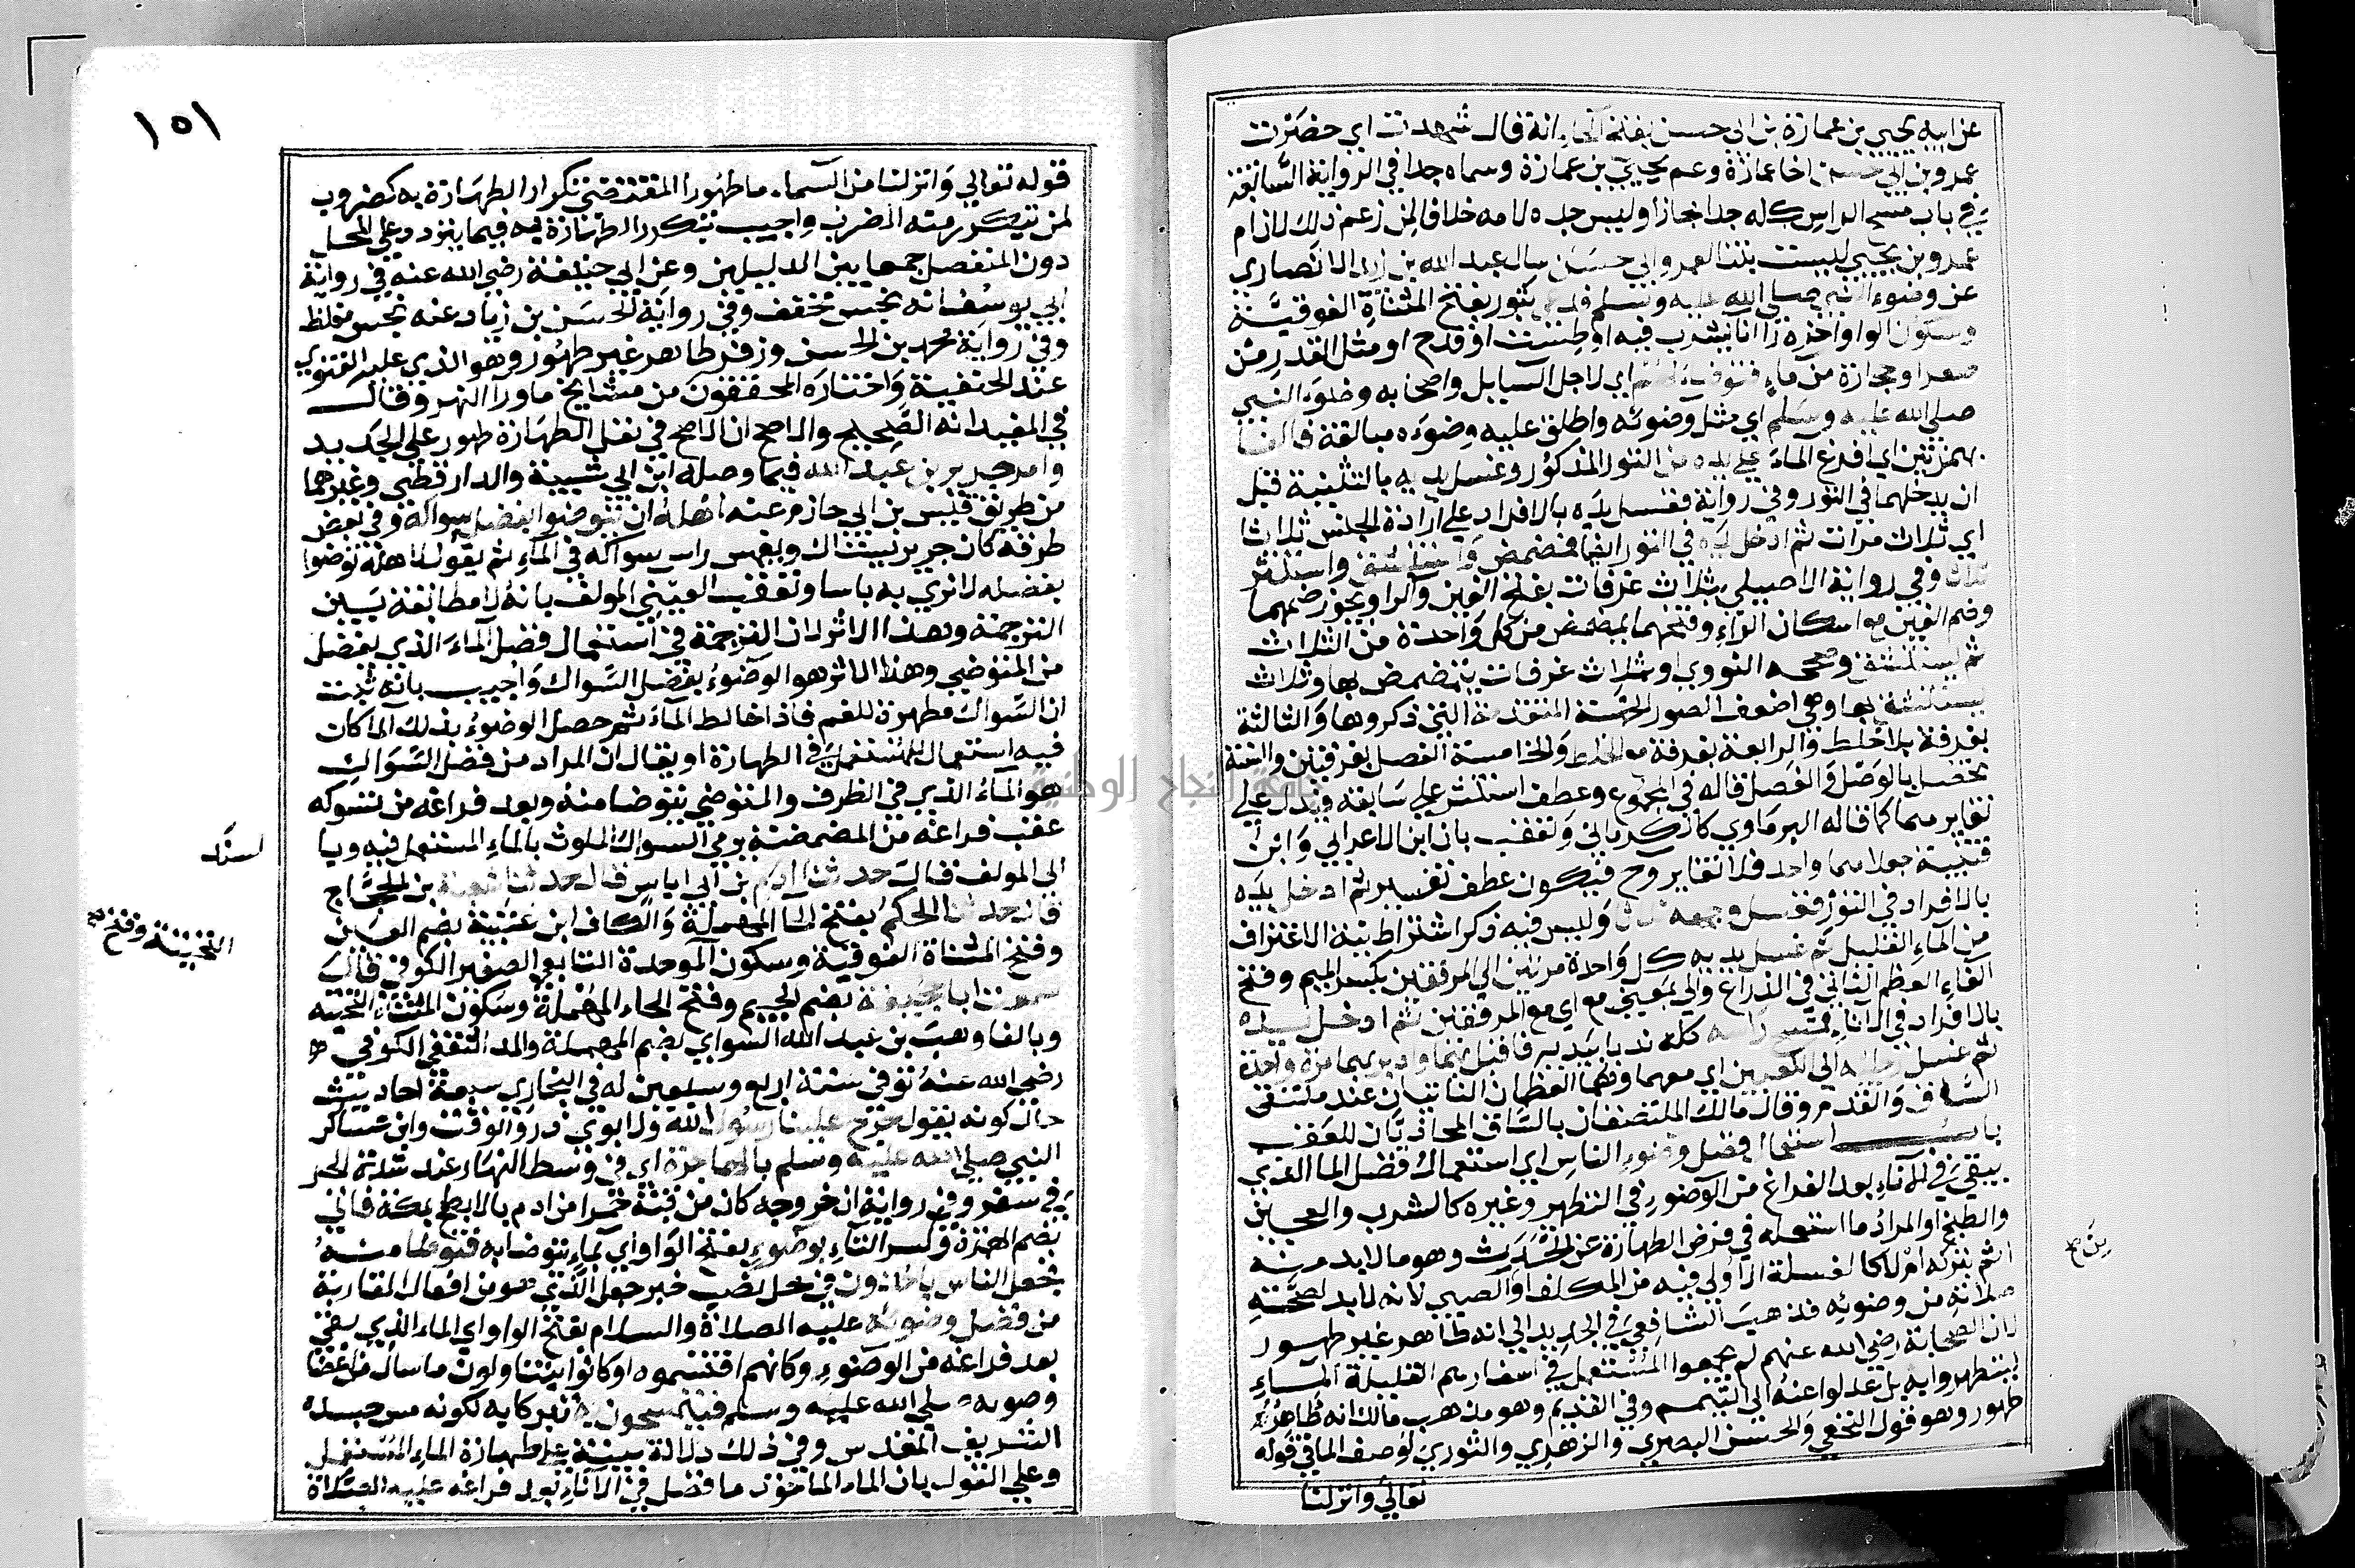 عن ابيه يحيي بن عمارة بن ابي حسن بفتح الحاء انه قال شهدت اي حضرت
عمرو بن ابي حسن اخا عمارة وعم يحيي بن عمارة وسماه جدا في الرواية السابقة
في باب مسح الراس كله جدا مجازا وليس جده لامه خلافا لمن زعم ذلك لان ام
عمرو بن يحيي ليست بنتا لعمرو ابي حسن سال عبد الله بن زيد الانصاري
عن وضوء النبي صلي الله عليه وسلم فدعي بتور بفتح المثناة الفوقية
وسكون الواو اخره را انا يشرب فيه او طست او قدح او مثل القدر من
صفر او حجارة من ماء فتوضا لهم اي لاجل السايل واصحابه وضوء النبي
صلي الله عليه وسلم اي مثل وضوئه واطلق عليه وضوءه مبالغة فاكفا
بهمزتين اي افرغ الماء علي يده من التور المذكور وغسل يديه بالتثنية قبل
ان يدخلهما في التور وفي رواية فغسل يده بالافراد علي ارادة الجنس ثلاثا
اي ثلاث مرات ثم ادخل يده في التور ايضا فمضمض واستنشق واستنثر
ثلاثا وفي رواية الاصيلي بثلاث غرفات بفتح الغين والرا ويجوز ضمهما
وضم الغين مع اسكان الراء وفتحهما يمضمض من كل واحدة من الثلاث
ثم يستنشق وصححه النووي او بثلاث غرفات يتمضمض بها وثلاث
يستنشق بها وهي اضعف الصور الخمسة المتقدمة التي ذكروها والثالثة
بغرفة بلا خلط والرابعة بغرفة مع الخلط والخامسة الفصل بغرفتين والسنة
تحصل بالوصل والفصل قاله في المجموع وعطف استنثر علي سابقه فيدل علي
تغايرهما كما قاله البرماوي كالكرماني وتعقب بان ابن الاعرابي وابن
قتيبة جعلاهما واحد فلا تغاير وح فيكون عطف تفسير ثم ادخل يده
بالافراد في التور فغسل وجهه ثلاثا وليس فيه ذكر اشتراط نية الاغتراف
من الماء القليل ثم غسل يديه كل واحدة مرتين الي المرفقين بكسر الميم وفتح
الفاء العظم الثاني في الذراع والي بمعني مع اي مع المرفقين ثم ادخل يده
بالافراد في الاناء فمسح راسه كله ندبا بيديه فاقبل بهما وادبر بهما مرة واحدة
ثم غسل رجليه الي الكعبين اي معهما وهما العظمان الناتيان عند ملتقي
الساق والقدم وقال مالك الملتصقان بالساق المحاذيان للعقب
باب استعمال فضل وضوء الناس اي استعمال فضل الما الذي
يبقي في الاناء بعد الفراغ من الوضوء في التطهر وغيره كالشرب والعجين
والطبخ او المراد ما استعمله في فرض الطهارة عن الحدث وهو ما لا بد منه
اثم بتركه ام لا كالغسلة الاولي فيه من المكلف او الصبي لانه لا بد لصحة
صلاته من وضوئه فذهب الشافعي في الجديد الي انه طاهر غير طهور
لان الصحابة رضي الله عنهم لم يجمعوا المستعمل في اسفارهم القليلة الماء
ليتطهروا به بل عدلوا عنه الي التيمم وفي القديم وهو مذهب مالك انه طاهر
طهور وهو قول النخعي والحسن البصري والزهري والثوري لوصف الما في قوله
تعالي وانزلنا
١٥١
قوله تعالي وانزلنا من السماء ماطهورا المقتضي تكرار الطهارة به كضروب
لمن تكرر منه الضرب واجيب بتكرر الطهارة به فيما يتردد علي المحل
دون المنفصل جمعا بين الدليلين وعن ابي حنيفة رضي الله عنه في رواية
ابي يوسف انه نجس مخفف وفي رواية الحسن بن زياد عنه نجس مغلظ
وفي رواية محمد بن الحسن وزفر طاهر غير طهور وهو الذي عليه الفتوي
عند الحنفية واختاره المحققون من مشايخ ما ورا النهر وقال
في المفيد انه الصحيح والاصح ان الاصح في نفل الطهارة طهور علي الجديد
وامر جرير بن عبد الله فيما وصله ابن ابي شيبة والدارقطني وغيرهما
من طريق قيس بن ابي حازم عنه اهله ان يتوضوا بفضل سواكه وفي بعض
طرقه كان جرير يستاك ويغمس راس سواكه في الماء ثم يقول لاهله توضوا
بفضله لا نري به باسا وتعقب العيني المولف بانه لا مطابقة بين
الترجمة وهذا الاثر لان الترجمة في استعمال فضل الماء الذي يفضل
من المتوضي وهذا الاثر هو الوضوء بفضل السواك واجيب بانه ثبت
ان السواك مطهرة للفم فاذا خالط الماء ثم حصل الوضوء بذلك الما كان
فيه استعمال للمستعمل في الطهارة او يقال ان المراد من فضل السواك
هو الماء الذي في الظرف والمتوضي يتوضا منه وبعد فراغه من تسوكه
عقب فراغه من المضمضة يرمي السواك الملوث بالماء المستعمل فيه وبا
لسند
الي المولف قال حدثنا ادم بن ابي اياس قال حدثنا شعبة بن الحجاج
قال حدثنا الحكم بفتح الحا المهملة والكاف ابن عتيبة بضم العين
وفتح المثناة الفوقية وسكون الموحدة التابعي الصغير الكوفي قال
التحتية وفتح
سمعت ابا جحيفة بضم الجيم وفتح الحاء المهملة وسكون المثناة التحتية
وبالفا وهب بن عبد الله السواي بضم المهملة والمد الثقفي الكوفي
رضي الله عنه توفي سنة اربع وسبعين له في البخاري سبعة احاديث
حال كونه يقول خرج علينا رسول الله ولابوي ذر والوقت وابن عساكر
النبي صلي الله عليه وسلم بالهاجرة اي في وسط النهار عند شدة الحر
في سفر وفي رواية ان خروجه كان من قبة حمرا من ادم بالابطح بمكة فاتي
بضم الهمزة وكسر التاء بوضوء بفتح الواو اي بماء يتوضا به فتوضا منه
فجعل الناس ياخذون في محل نصب خبر جعل الذي هو من افعال المقاربة
من فضل وضوئه عليه الصلاة والسلام بفتح الواو اي الماء الذي بقي
بعد فراغه من الوضوء وكانهم اقتسموه او كانوا يتناولون ما سال من اعضا
وضوئه صلي الله عليه وسلم فيتمسحون به تبركا به لكونه مس جسده
الشريف المقدس وفي ذلك دلالة بينة علي طهارة الماء المستعمل
وعلي القول بان الماء الماخوذ ما فضل في الاناء بعد فراغه عليه الصلاة
جامعة النجاح الوطنية